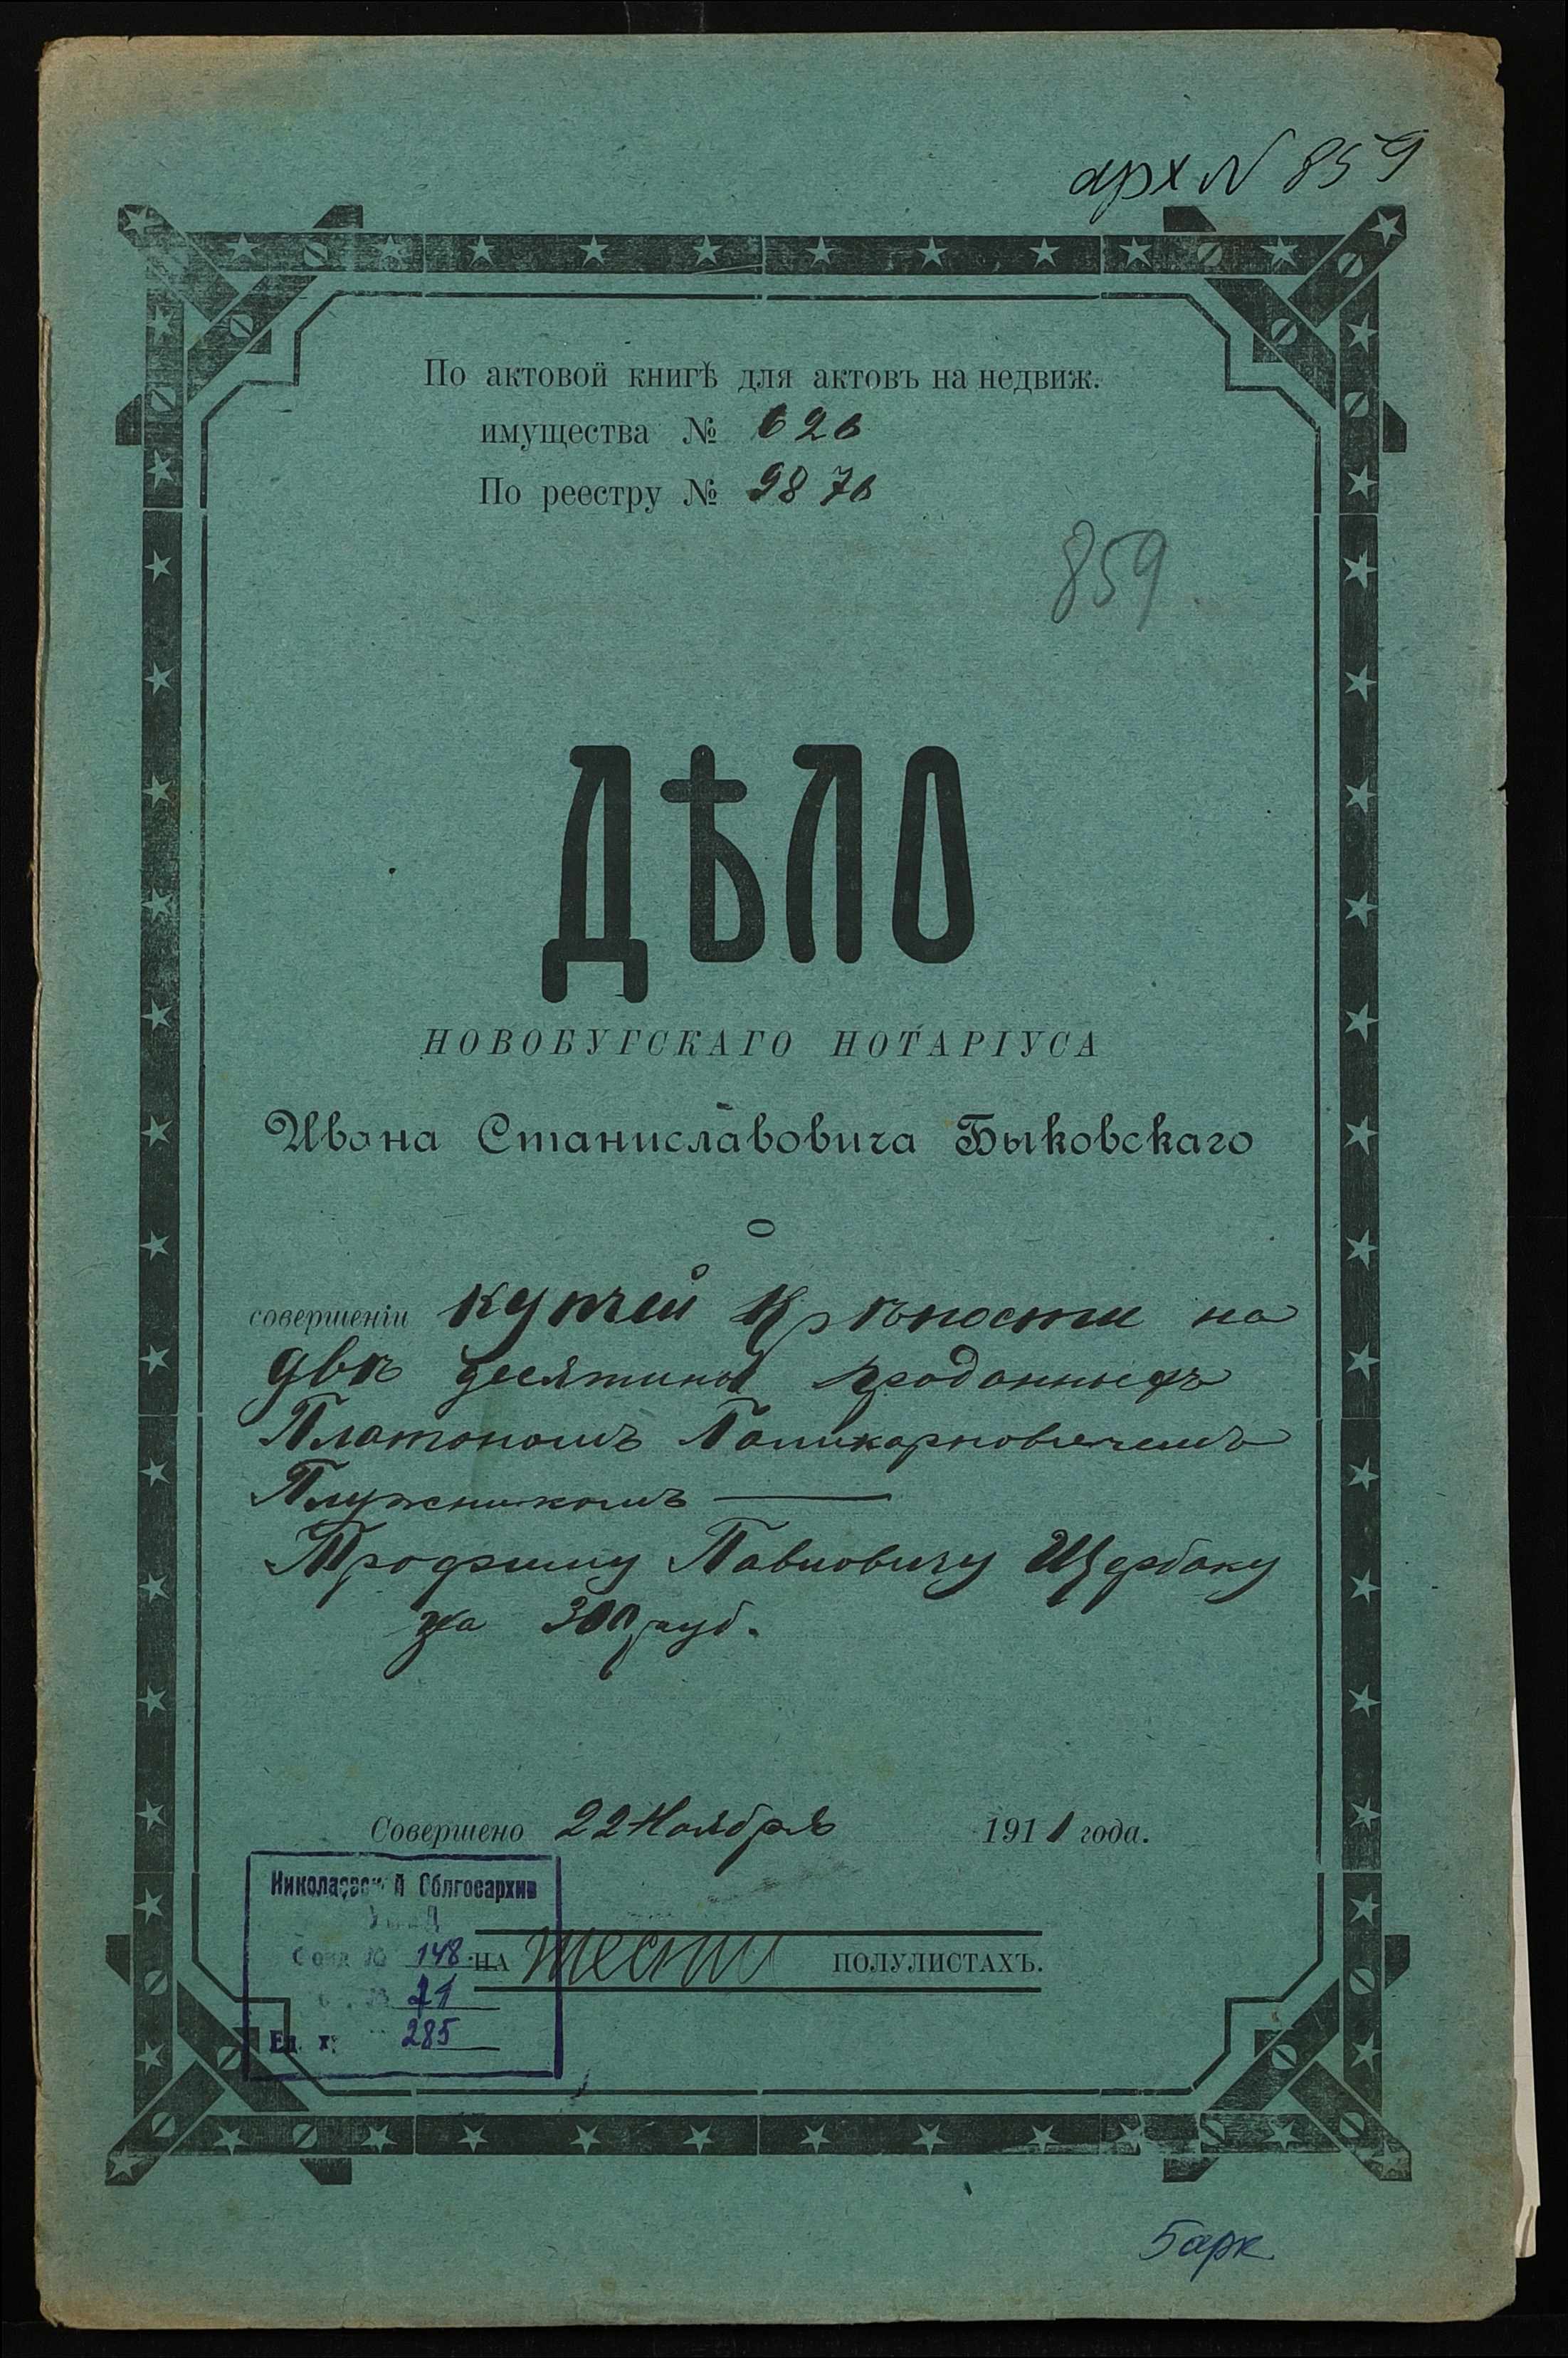 арх N 859
По актовой книгѣ для актовъ на недвиж.
имущества № 626
По реестру № 9876
859
ДѢЛО
НОВОБУГСКАГО НОТАРІУСА
Ивана Станиславовича Быковскаго
О
совершеніи купчей крѣпости на
двѣ десятины проданныхъ
Платономъ Поликарповичемъ
Плужникомъ
Трофиму Павловичу Щербаку
за 300 руб.
Совершено 22 Ноября 1911 года.
Николаевский Облгосархив
Фонд № 148
21
Ед. х. 285
НА шести ПОЛУЛИСТАХЪ.
5 арк